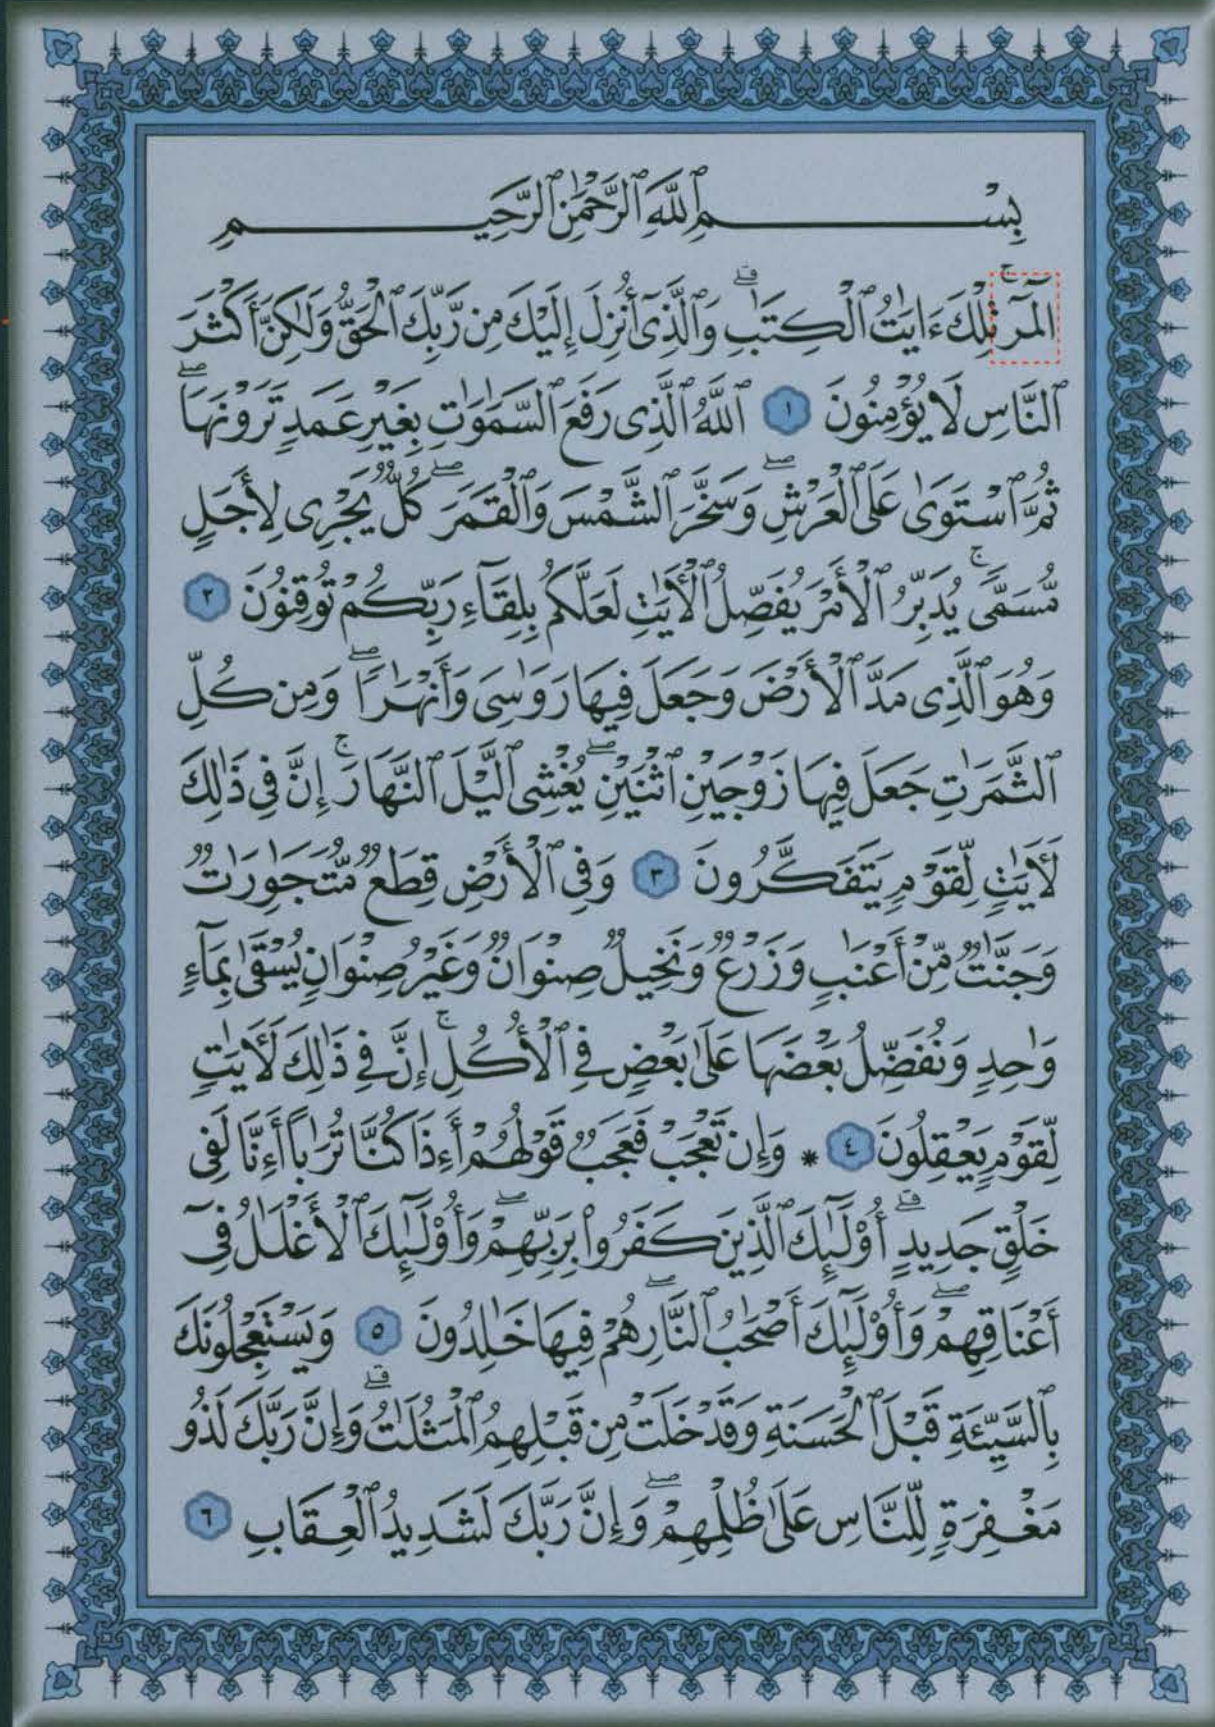 بِسْمِ ٱللَّهِ ٱلرَّحْمَٰنِ ٱلرَّحِيمِ
الٓمٓر ۚ تِلْكَ ءَايَٰتُ ٱلْكِتَٰبِ ۗ وَٱلَّذِىٓ أُنزِلَ إِلَيْكَ مِن رَّبِّكَ ٱلْحَقُّ وَلَٰكِنَّ أَكْثَرَ
ٱلنَّاسِ لَا يُؤْمِنُونَ ١ ٱللَّهُ ٱلَّذِى رَفَعَ ٱلسَّمَٰوَٰتِ بِغَيْرِ عَمَدٍ تَرَوْنَهَا ۖ
ثُمَّ ٱسْتَوَىٰ عَلَى ٱلْعَرْشِ ۖ وَسَخَّرَ ٱلشَّمْسَ وَٱلْقَمَرَ ۖ كُلٌّ يَجْرِى لِأَجَلٍ
مُّسَمًّى ۚ يُدَبِّرُ ٱلْأَمْرَ يُفَصِّلُ ٱلْأَيَٰتِ لَعَلَّكُم بِلِقَآءِ رَبِّكُمْ تُوقِنُونَ ٢
وَهُوَ ٱلَّذِى مَدَّ ٱلْأَرْضَ وَجَعَلَ فِيهَا رَوَٰسِىَ وَأَنْهَٰرًا ۖ وَمِن كُلِّ
ٱلثَّمَرَٰتِ جَعَلَ فِيهَا زَوْجَيْنِ ٱثْنَيْنِ ۖ يُغْشِى ٱلَّيْلَ ٱلنَّهَارَ ۚ إِنَّ فِى ذَٰلِكَ
لَأَيَٰتٍ لِّقَوْمٍ يَتَفَكَّرُونَ ٣ وَفِى ٱلْأَرْضِ قِطَعٌ مُّتَجَٰوِرَٰتٌ
وَجَنَّٰتٌ مِّنْ أَعْنَٰبٍ وَزَرْعٌ وَنَخِيلٌ صِنْوَانٌ وَغَيْرُ صِنْوَانٍ يُسْقَىٰ بِمَآءٍ
وَٰحِدٍ وَنُفَضِّلُ بَعْضَهَا عَلَىٰ بَعْضٍ فِى ٱلْأُكُلِ ۚ إِنَّ فِى ذَٰلِكَ لَأَيَٰتٍ
لِّقَوْمٍ يَعْقِلُونَ ٤ * وَإِن تَعْجَبْ فَعَجَبٌ قَوْلُهُمْ أَءِذَا كُنَّا تُرَٰبًا أَءِنَّا لَفِى
خَلْقٍ جَدِيدٍ ۗ أُو۟لَٰٓئِكَ ٱلَّذِينَ كَفَرُوا۟ بِرَبِّهِمْ ۖ وَأُو۟لَٰٓئِكَ ٱلْأَغْلَٰلُ فِىٓ
أَعْنَاقِهِمْ ۖ وَأُو۟لَٰٓئِكَ أَصْحَٰبُ ٱلنَّارِ ۖ هُمْ فِيهَا خَٰلِدُونَ ٥ وَيَسْتَعْجِلُونَكَ
بِٱلسَّيِّئَةِ قَبْلَ ٱلْحَسَنَةِ وَقَدْ خَلَتْ مِن قَبْلِهِمُ ٱلْمَثُلَٰتُ ۗ وَإِنَّ رَبَّكَ لَذُو
مَغْفِرَةٍ لِّلنَّاسِ عَلَىٰ ظُلْمِهِمْ ۖ وَإِنَّ رَبَّكَ لَشَدِيدُ ٱلْعِقَابِ ٦